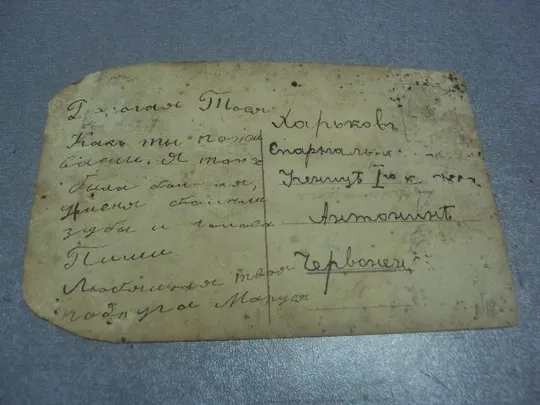 Дорогая Тося
Какъ ты пожи
ваеш. Я тожъ
была больная,
у меня болели
зубы и голова
Пиши
Любящая твоя
подруга Маруся
Харьковъ
Епархіаль.
Ученицѣ Iго к
Антонинѣ
Червонец